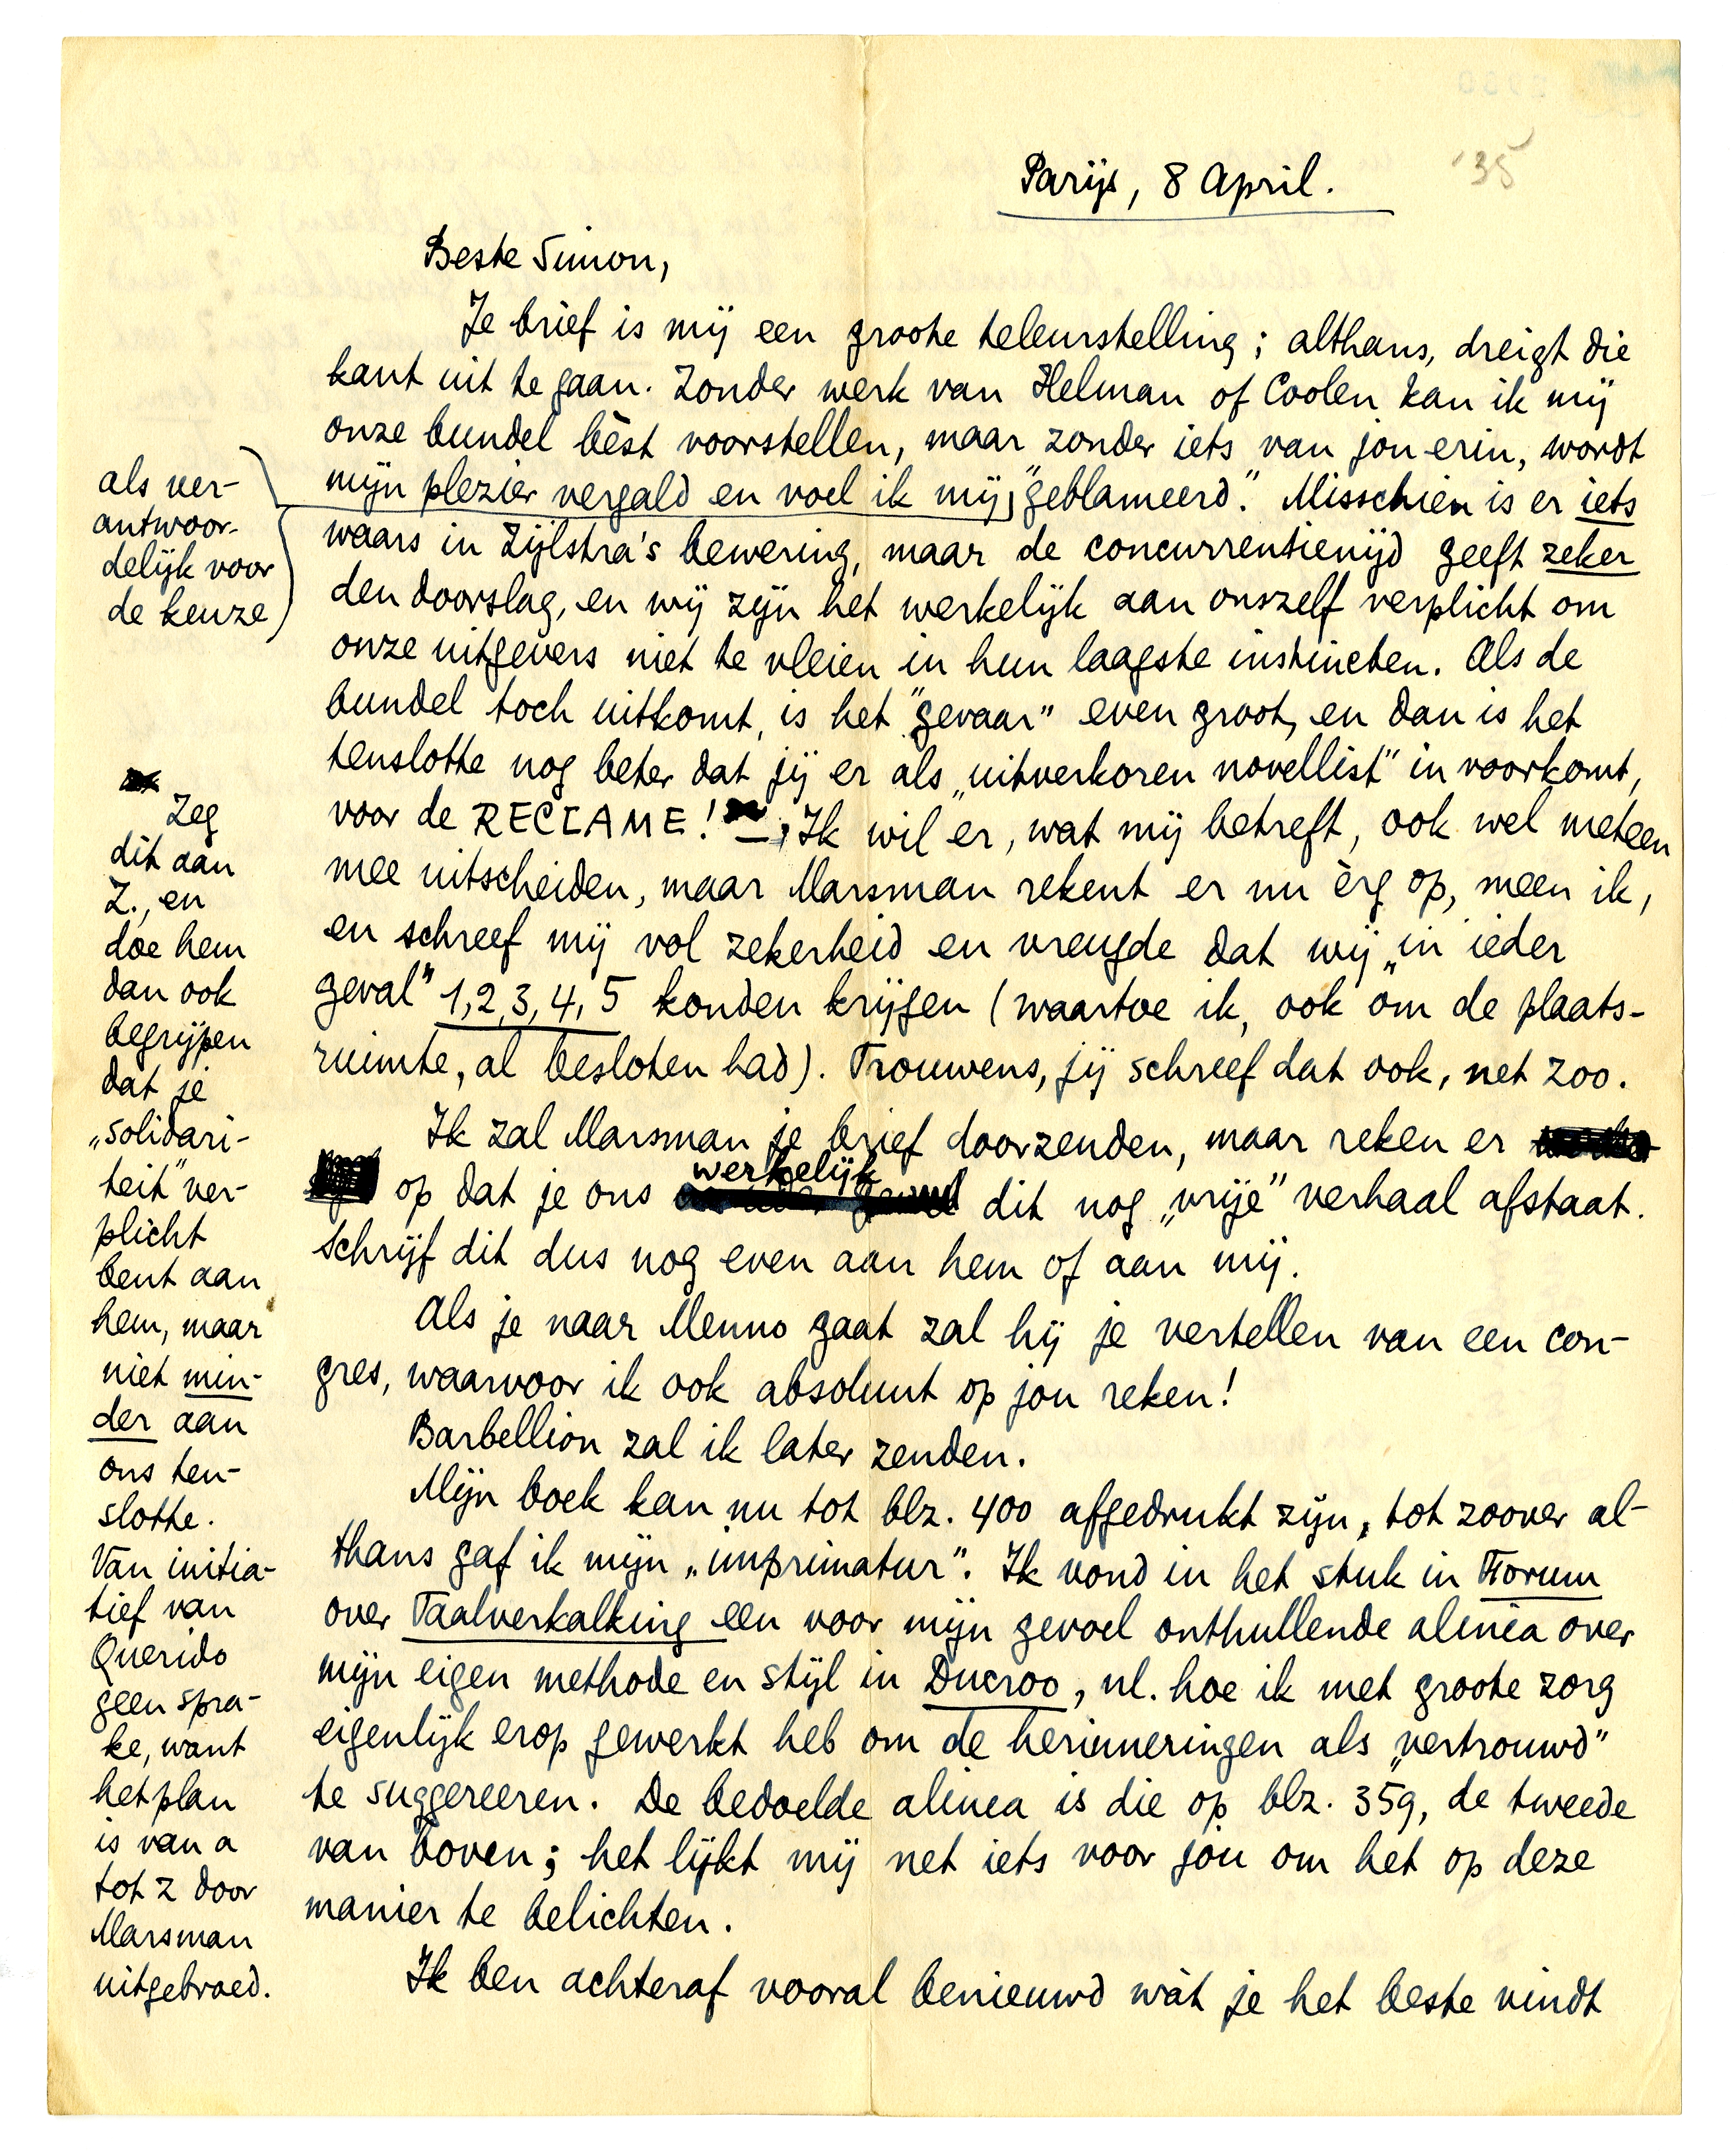 Parijs, 8 April. '35
Beste Simon,
Je brief is mij een groote teleurstelling; althans, dreigt die
kant uit te gaan. Zonder werk van Helman of Coolen kan ik mij
onze bundel bèst voorstellen, maar zonder iets van jou erin, wordt
mijn plezier vergald en voel ik mij, "geblameerd". Misschien is er iets
waars in Zijlstra's bewering, maar de concurrentienijd geeft zeker
den doorslag, en wij zijn het werkelijk aan onszelf verplicht om
onze uitgevers niet te vleien in hun laagste instincten. Als de
bundel toch uitkomt, is het "gevaar" even groot, en dan is het
tenslotte nog beter dat jij er als „uitverkoren novellist" in voorkomt,
voor de RECLAME! – Ik wil er, wat mij betreft, ook wel meteen
mee uitscheiden, maar Marsman rekent er nu èrg op, meen ik,
en schreef mij vol zekerheid en vreugde dat wij „in ieder
geval" 1, 2, 3, 4, 5 konden krijgen (waartoe ik, ook om de plaats-
ruimte, al besloten had). Trouwens, jij schreef dat ook, net zoo.
Ik zal Marsman je brief doorzenden, maar reken er
op dat je ons werkelijk dit nog „vrije" verhaal afstaat.
Schrijf dit dus nog even aan hem of aan mij.
Als je naar Menno gaat zal hij je vertellen van een con-
gres, waarvoor ik ook absoluut op jou reken!
Barbellion zal ik later zenden.
Mijn boek kan nu tot blz. 400 afgedrukt zijn, tot zoover al-
thans gaf ik mijn „imprimatur". Ik vond in het stuk in Forum
over Taalverkalking een voor mijn gevoel onthullende alinea over
mijn eigen methode en stijl in Ducroo, nl. hoe ik met groote zorg
eigenlijk erop gewerkt heb om de herinneringen als „vertrouwd"
te suggereeren. De bedoelde alinea is die op blz. 359, de tweede
van boven; het lijkt mij net iets voor jou om het op deze
manier te belichten.
Ik ben achteraf vooral benieuwd wàt je het beste vindt
als ver-
antwoor-
delijk voor
de keuze
Zeg
dit aan
Z., en
doe hem
dan ook
begrijpen
dat je
„solidari-
teit" ver-
plicht
bent aan
hem, maar
niet min-
der aan
ons ten-
slotte.
Van initia-
tief van
Querido
geen spra-
ke, want
het plan
is van a
tot z door
Marsman
uitgebroed.